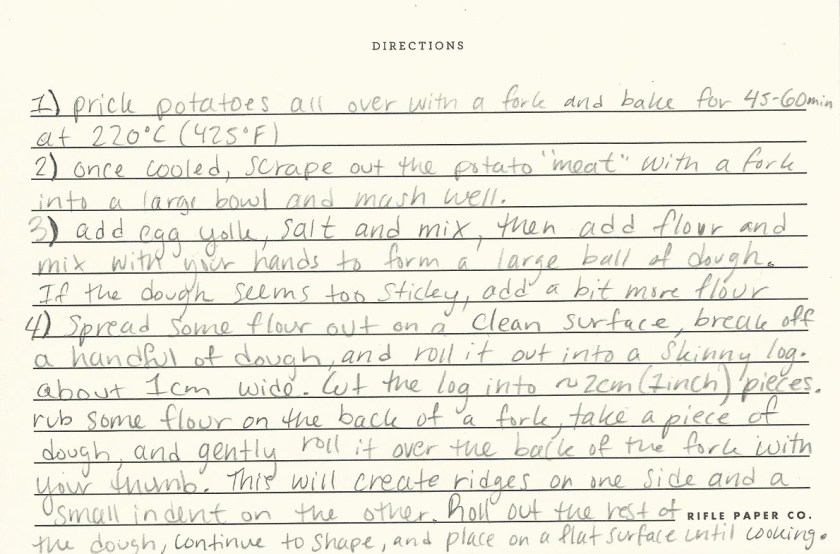 DIRECTIONS
1) prick potatoes all over with a fork and bake for 45-60min
at 220°C (425°F)
2) once cooled, scrape out the potato "meat" with a fork
into a large bowl and mash well.
3) add egg yolk, salt and mix, then add flour and
mix with your hands to form a large ball of dough.
If the dough seems too stickey, add a bit more flour
4) Spread some flour out on a clean surface, break off
a handful of dough, and roll it out into a skinny log.
about 1cm wide. Cut the log into ~2cm (1inch) pieces.
rub some flour on the back of a fork, take a piece of
dough, and gently roll it over the back of the fork with
your thumb. This will create ridges on one side and a
small indent on the other. Roll out the rest of
RIFLE PAPER CO.
the dough, continue to shape, and place on a flat surface until cooking.